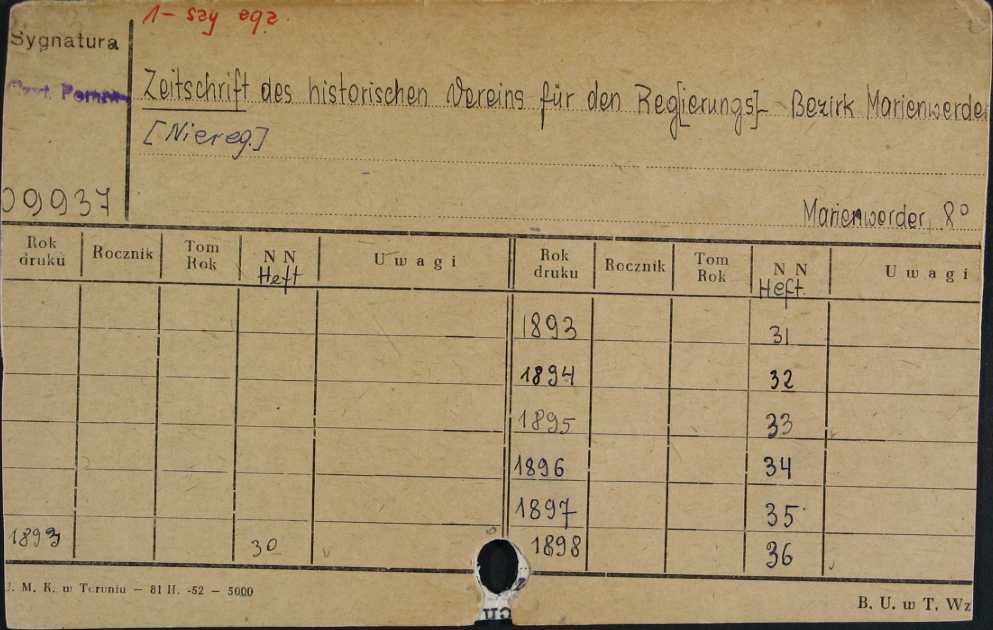 1-szy egz.
Sygnatura
Pomer
Zeitschrift des historischen Vereins für den Reg[ierungs]- Bezirk Marienwerder
[Niereg.]
09937
Marienwerder, 8°
Rok druku Rocznik Tom Rok NN Uwagi Rok druku Rocznik Tom Rok NN Uwagi
Heft Heft.
1893 31
1894 32
1895 33
1896 34
1897 35
1893 30 1898 36
U. M. K. w Toruniu — 81 II. -52 — 5000
B. U. w T. Wz